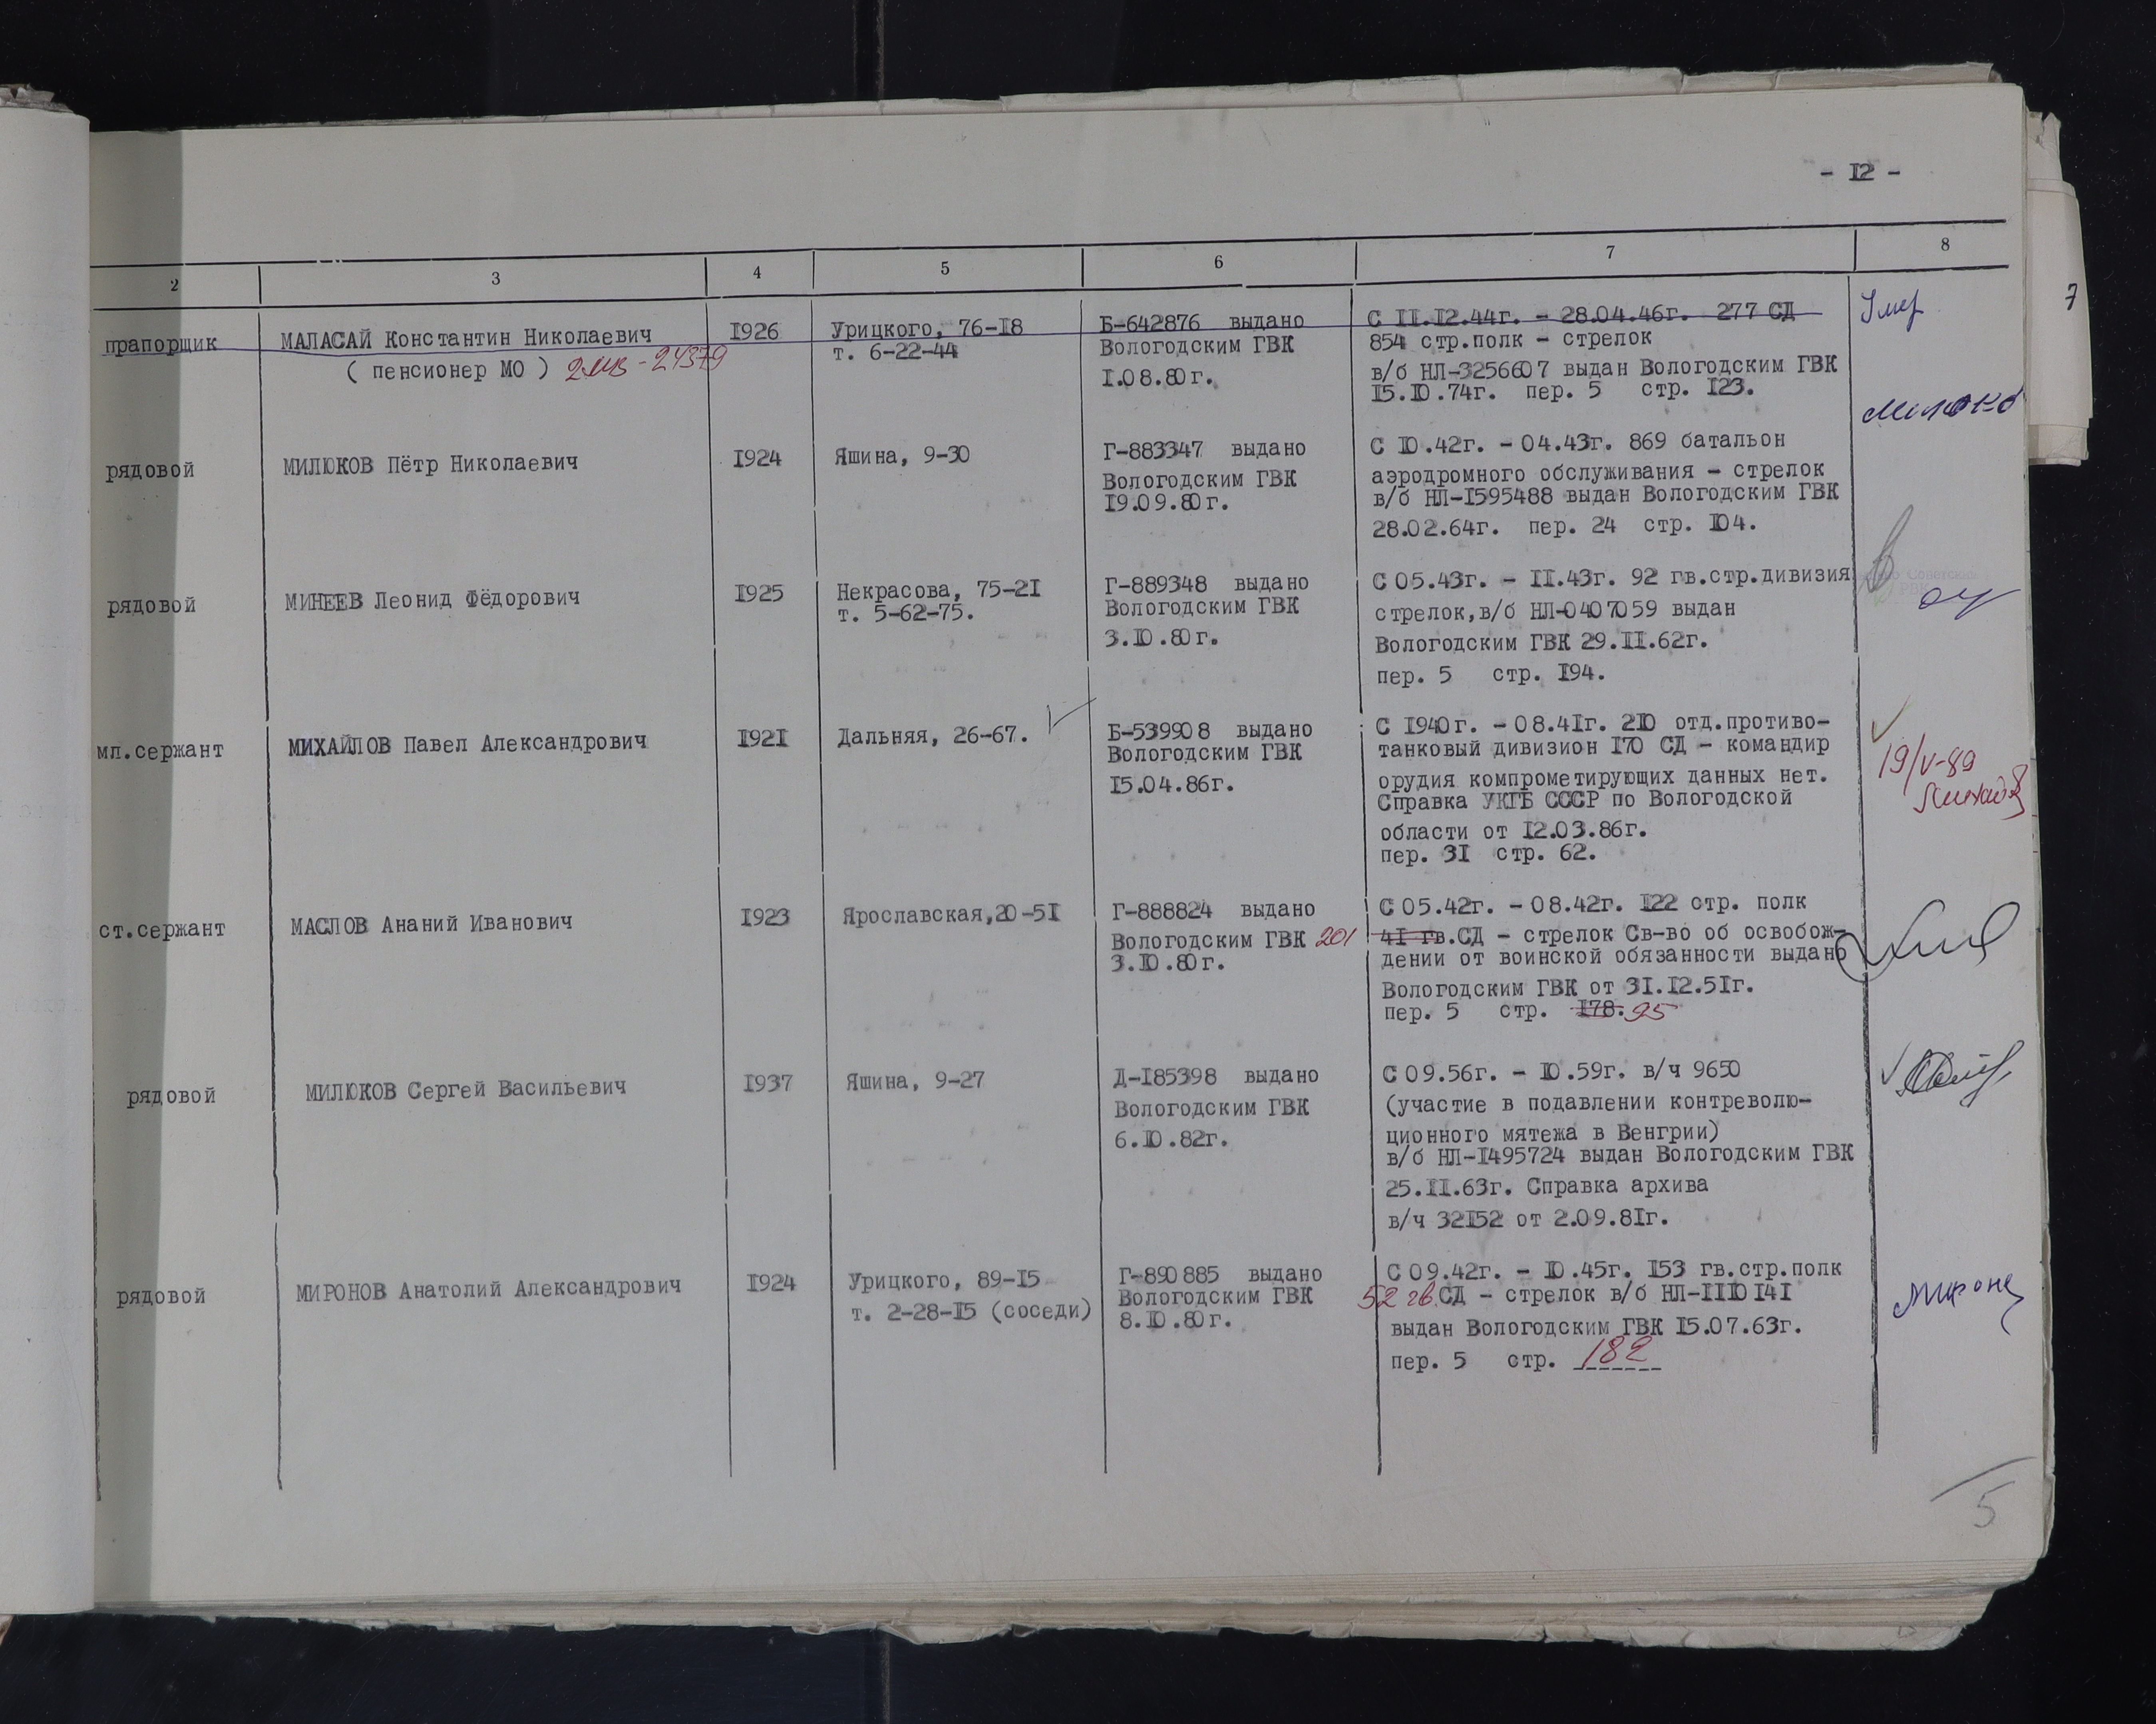 - I2 -
2 3 4 5 6 7 8
7
прапорщик
МАЛАСАЙ Константин Николаевич
( пенсионер МО )
I926
Урицкого, 76-I8
т. 6-22-44
Б-642876 выдано
Вологодским ГВК
I.08.80г.
С II.I2.44г. - 28.04.46г. 277 СД
854 стр.полк - стрелок
в/б НЛ-3256607 выдан Вологодским ГВК
I5.I0.74г. пер. 5 стр. I23.
Умер
рядовой
МИЛЮКОВ Пётр Николаевич
I924
Яшина, 9-30
Г-883347 выдано
Вологодским ГВК
I9.09.80г.
С I0.42г. - 04.43г. 869 батальон
аэродромного обслуживания - стрелок
в/б НЛ-I595488 выдан Вологодским ГВК
28.02.64г. пер. 24 стр. I04.
рядовой
МИНЕЕВ Леонид Фёдорович
I925
Некрасова, 75-2I
т. 5-62-75.
Г-889348 выдано
Вологодским ГВК
3.I0.80г.
С 05.43г. - II.43г. 92 гв.стр.дивизия
стрелок,в/б НЛ-0407059 выдан
Вологодским ГВК 29.II.62г.
пер. 5 стр. I94.
мл.сержант
МИХАЙЛОВ Павел Александрович
I92I
Дальняя, 26-67.
Б-539908 выдано
Вологодским ГВК
I5.04.86г.
С I940г. - 08.4Iг. 2I0 отд.противо-
танковый дивизион I70 СД - командир
орудия компрометирующих данных нет.
Справка УКГБ СССР по Вологодской
области от I2.03.86г.
пер. 3I стр. 62.
19/V-89
ст.сержант
МАСЛОВ Ананий Иванович
I923
Ярославская,20-5I
Г-888824 выдано
Вологодским ГВК
3.I0.80г.
С 05.42г. - 08.42г. I22 стр. полк
201 4I гв.СД - стрелок Св-во об освобож-
дении от воинской обязанности выдано
Вологодским ГВК от 3I.I2.5Iг.
пер. 5 стр. I78. 95
рядовой
МИЛЮКОВ Сергей Васильевич
I937
Яшина, 9-27
Д-I85398 выдано
Вологодским ГВК
6.I0.82г.
С 09.56г. - I0.59г. в/ч 9650
(участие в подавлении контреволю-
ционного мятежа в Венгрии)
в/б НЛ-I495724 выдан Вологодским ГВК
25.II.63г. Справка архива
в/ч 32I52 от 2.09.8Iг.
рядовой
МИРОНОВ Анатолий Александрович
I924
Урицкого, 89-I5
т. 2-28-I5 (соседи)
Г-890885 выдано
Вологодским ГВК
8.I0.80г.
С 09.42г. - I0.45г. I53 гв.стр.полк
52 гв.СД - стрелок в/б НЛ-III0I4I
выдан Вологодским ГВК I5.07.63г.
пер. 5 стр. 182
5